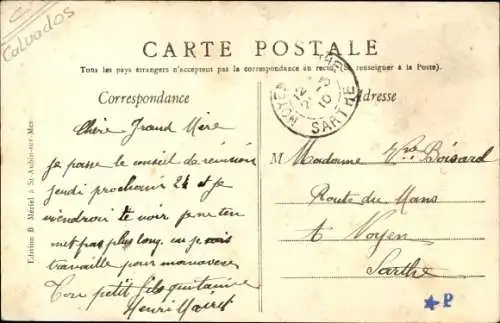 Calvados
CARTE POSTALE
Tous les pays étrangers n'acceptent pas la correspondance au recto (Se renseigner à la Poste).
Correspondance
Adresse
NOYEN
SARTHE
Chère Grand Mère
je passe le conseil de révision
jeudi prochain 24 et je
viendrai te voir je ne ten
met pas plus long, car je vais
travaille pour manœuvre
Ton petit fils
Henri
M Madame Vve Boisard
Route du Mans
A Noyen
Sarthe
Edition B. Mériel à St-Aubin-sur-Mer
P